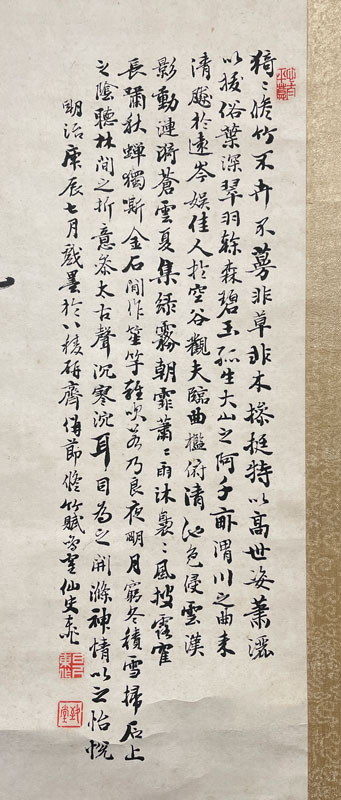 猗〻脩竹不卉不蔓非草非木操挺特以高世姿蕭灑
以拔俗葉深翠羽幹森碧玉孤生大山之阿千畝渭川之曲来
清飈於遠岑娯佳人於空谷觀夫臨曲檻俯清池色侵雲漢
影動漣漪蒼雲夏集緑霧朝霏蕭〻雨沐裊〻風披露寉
長嘯秋蟬獨嘶金石間作笙竽雜吹若乃良夜明月窮冬積雪掃石上
之陰聽林間之折意叅太古聲沉寥泬耳目為之開滌神情以之怡悅
明治庚辰七月戲墨於八稜硏齋併節脩竹賦雪仙史